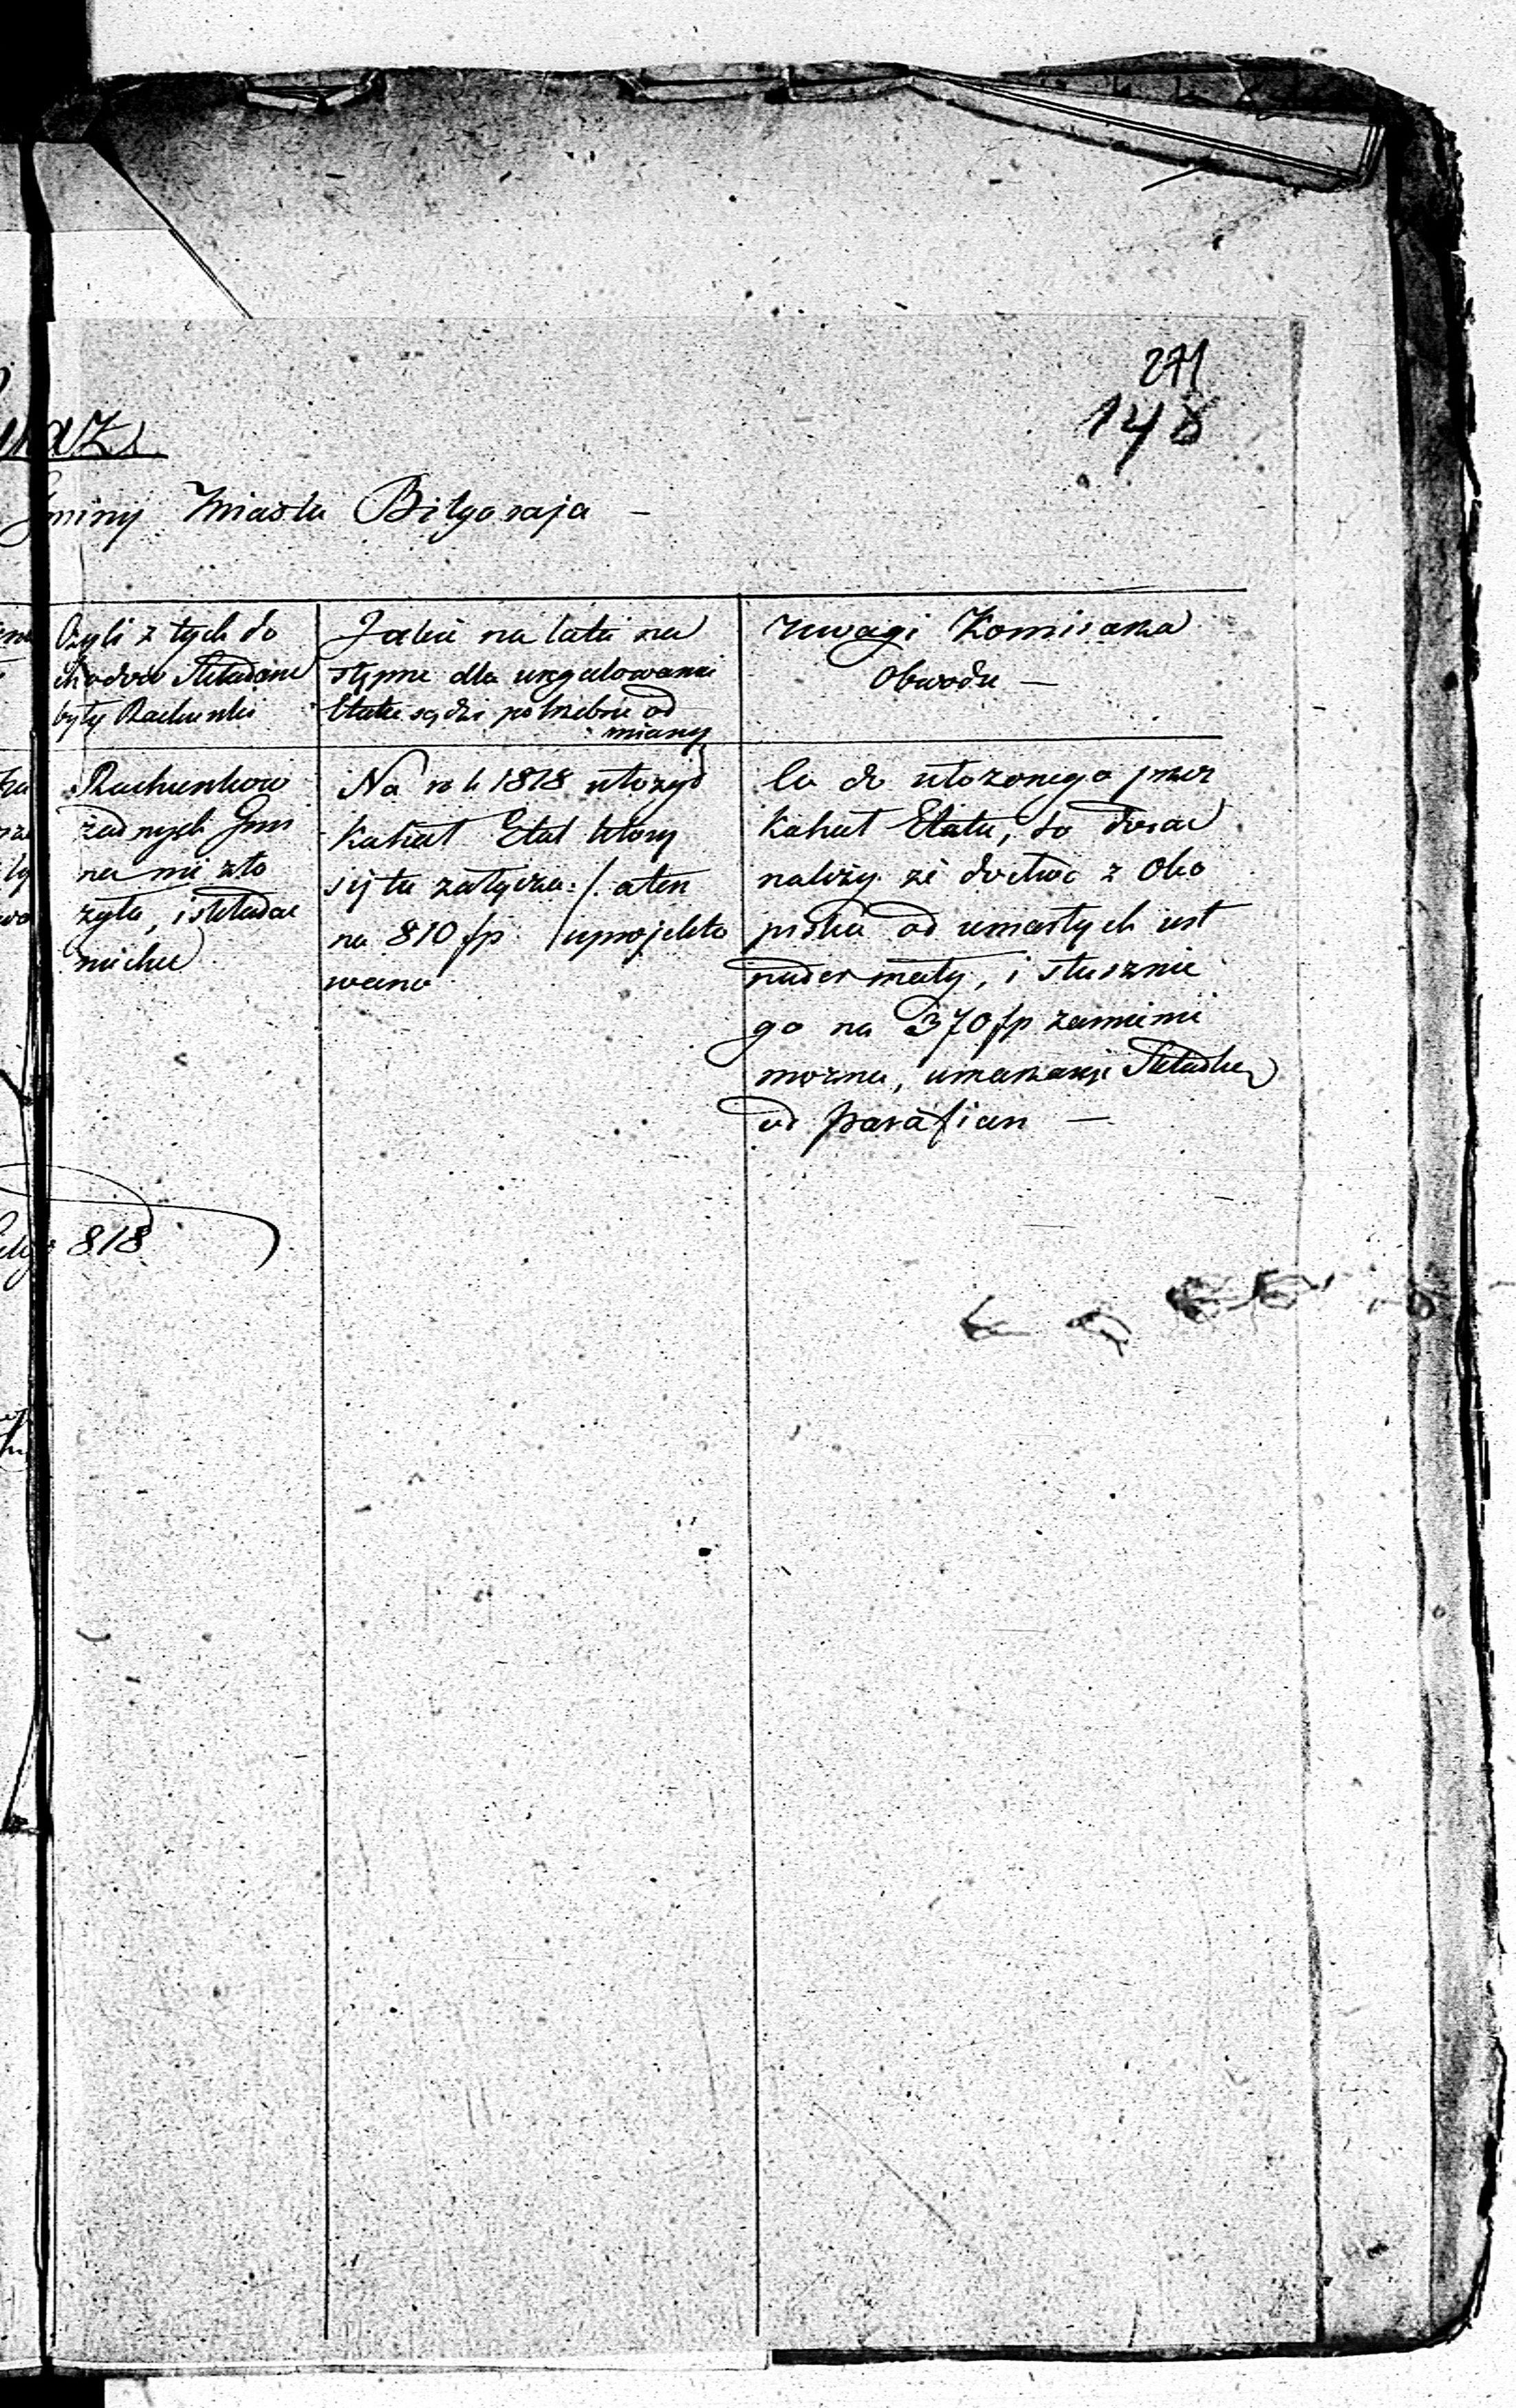 271
148
Gminy Miasta Biłgoraja —
Czyli z tych do
chodów składane
były Rachunki
Jakie na lata na
stępne dla uregulowania
Etatu są dzi potrzebne od
miany
Uwagi Komisarza
Obwodu —
Rachunkow
żadnych Gmi
na nie zło
żyła, i składać
niechce
Na rok 1818 ułożył
Kahał Etat który
się tu załącza :/. a ten
na 810 fp. uprojekto
wano
Co do ułożonego przez
Kahał Etatu, to dodać
należy że dochod z Oko
piska od umarłych iest
nader mały, i słusznie
go na 370 fp zamienić
można, umarzając Składkę
od parafian —
818